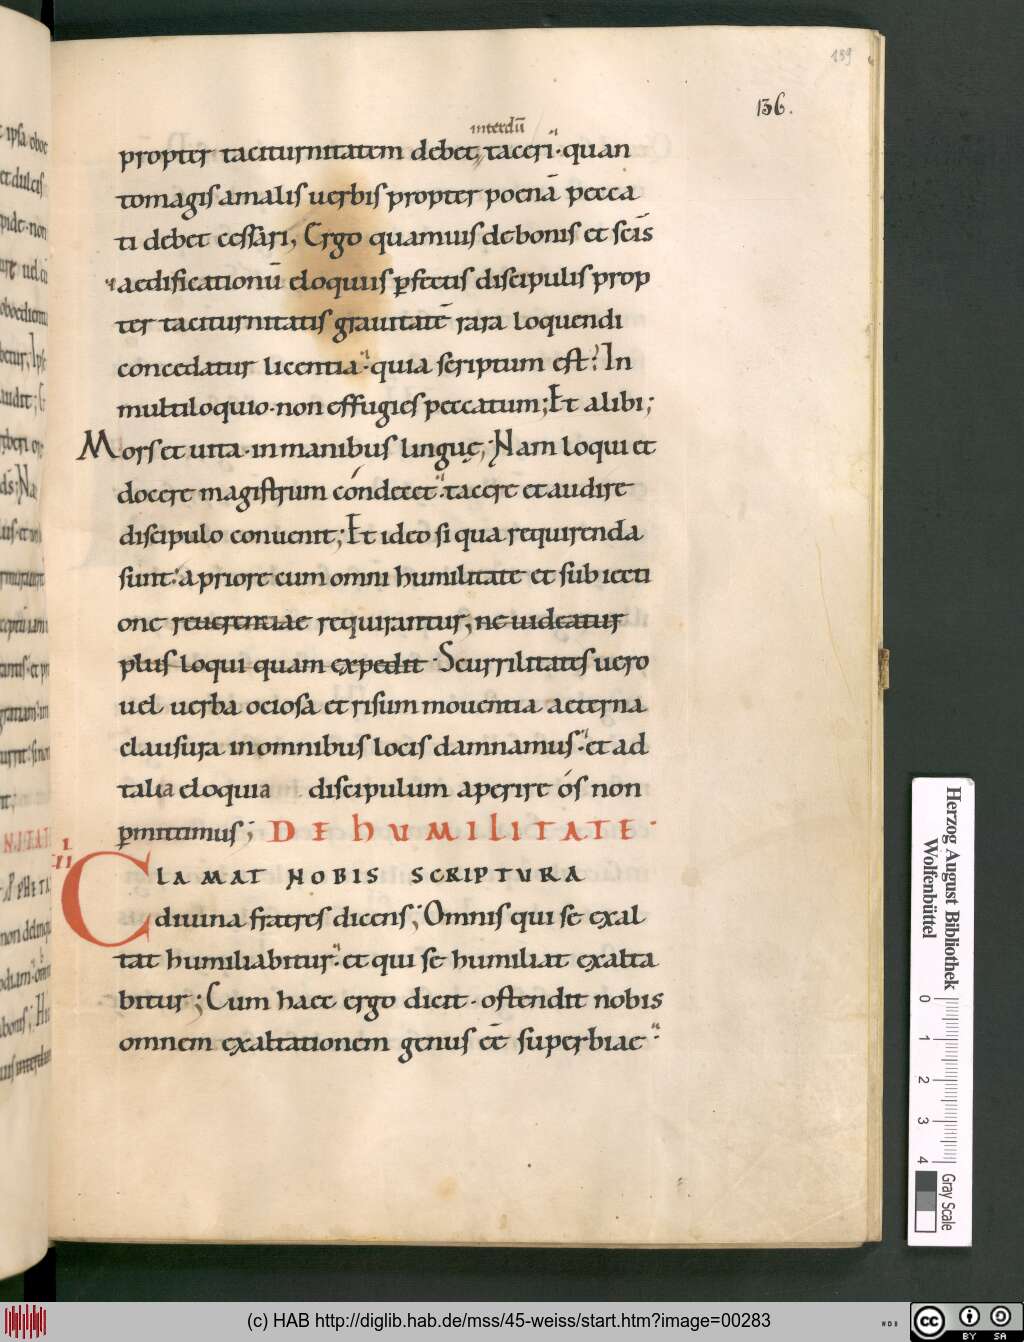 139
136.
interdū
propter taciturnitatem debet taceri · quan
to magis a malis uerbis propter poenā pecca
ti debet cessari, Ergo quamuis de bonis et scīs
aedificationū eloquiis ꝑfectis discipulis prop
ter taciturnitatis grauitatē rara loquendi
concedatur licentia · quia scriptum est: In
multiloquio · non effugies peccatum; Et alibi;
Mors et uita · in manibus linguę; Nam loqui et
docere magistrum condecet · tacere et audire
discipulo conuenit; Et ideo si qua requirenda
sunt · a priore cum omni humilitate et subiecti
one reuerentiae requirantur, ne uideatur
plus loqui quam expedit · Scurrilitates uero
uel uerba ociosa et risum mouentia aeterna
clausura in omnibus locis damnamus · et ad
talia eloquia discipulum aperire ós non
ꝑmittimus; DE HUMILITATE ·
CLAMAT NOBIS SCRIPTURA
diuina fratres dicens; Omnis qui se exal
tat humiliabitur · et qui se humiliat exalta
bitur; Cum haec ergo dicit · ostendit nobis
omnem exaltationem genus eē superbiae ·
Herzog August Bibliothek
Wolfenbüttel
0 1 2 3 4
Gray Scale
(c) HAB http://diglib.hab.de/mss/45-weiss/start.htm?image=00283
cc BY SA